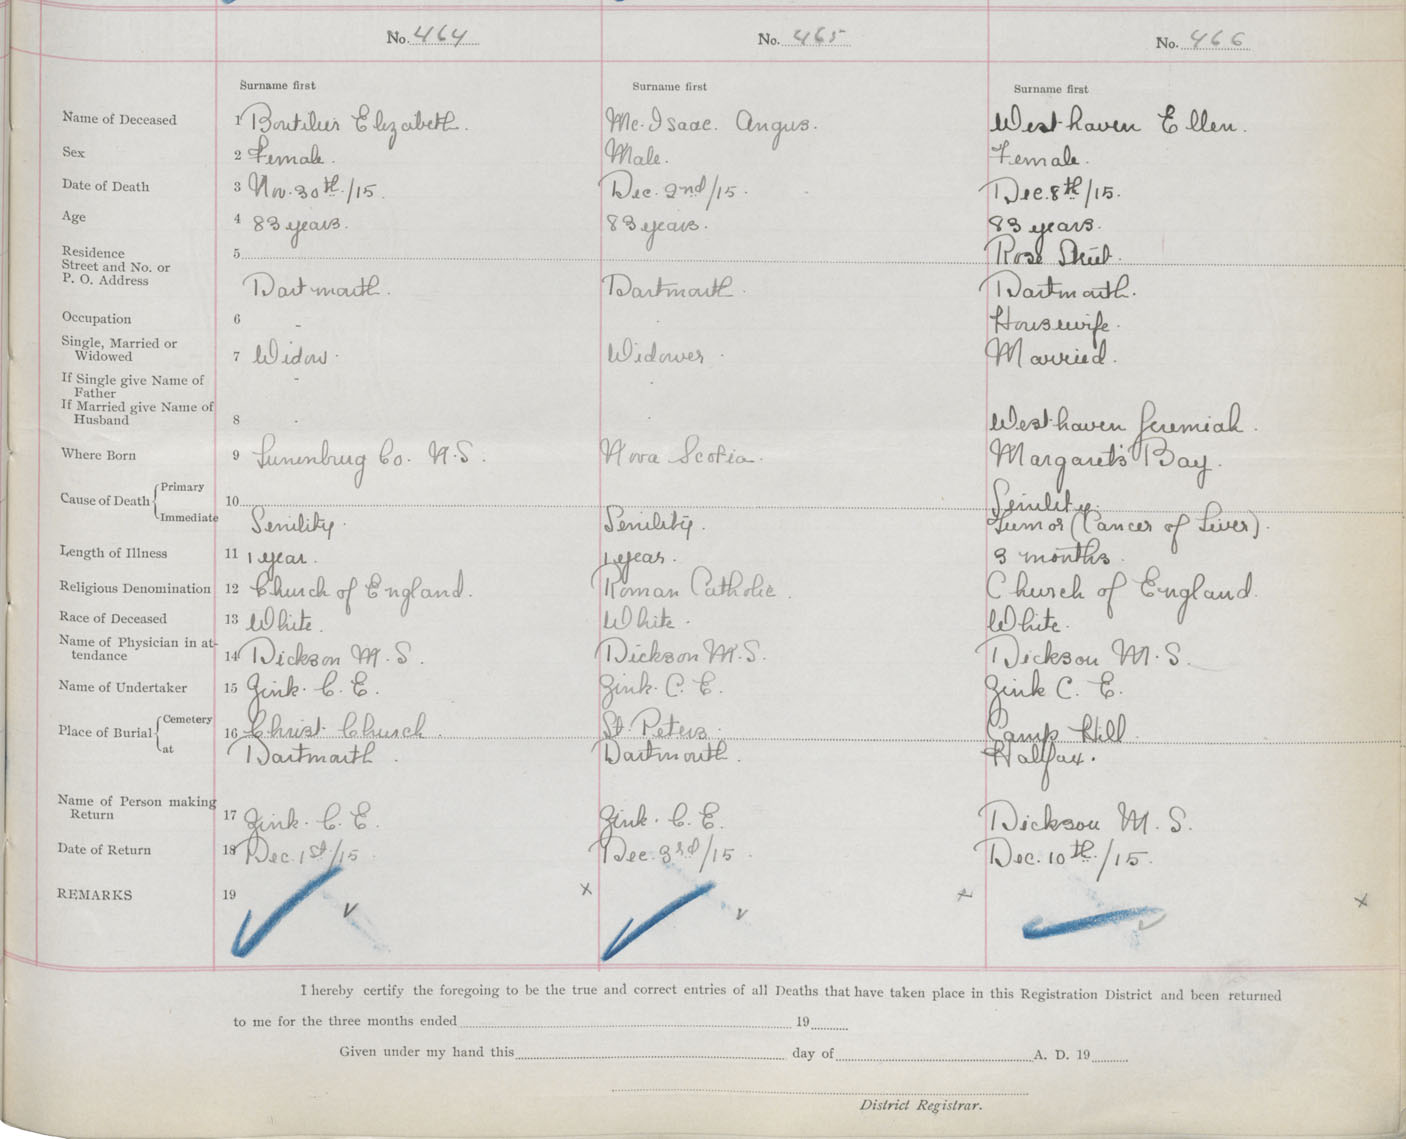 No. 464 No. 465 No. 466
Surname first Surname first Surname first
Name of Deceased 1 Boutilier Elizabeth. Mc. Isaac. Angus. Westhaven Ellen.
Sex 2 Female. Male. Female.
Date of Death 3 Nov. 30th/15. Dec. 2nd/15. Dec. 8th/15.
Age 4 83 years. 83 years. 83 years.
Residence 5 Rose Street.
Street and No. or
P. O. Address Dartmouth. Dartmouth. Dartmouth.
Occupation 6 - Housewife.
Single, Married or
Widowed 7 Widow. Widower. Married.
If Single give Name of
Father
If Married give Name of
Husband 8 Westhaven Jeremiah.
Where Born 9 Lunenbrug Co. N.S. Nova Scotia. Margarets Bay.
Cause of Death { Primary 10 Senility.
Immediate Senility. Senility. Tumor (Cancer of Liver).
Length of Illness 11 1 year. 1 year. 3 months.
Religious Denomination 12 Church of England. Roman Catholic. Church of England.
Race of Deceased 13 White. White. White.
Name of Physician in at-
tendance 14 Dickson M.S. Dickson M.S. Dickson M.S.
Name of Undertaker 15 Zink. C. E. Zink. C. E. Zink C. E.
Place of Burial { Cemetery 16 Christ Church. St. Peters. Camp Hill
at Dartmouth. Dartmouth. Halfax.
Name of Person making
Return 17 Zink. C. E. Zink. C. E. Dickson M. S.
Date of Return 18 Dec. 1st/15 Dec. 3rd/15 Dec. 10th/15.
REMARKS 19 x x x
I hereby certify the foregoing to be the true and correct entries of all Deaths that have taken place in this Registration District and been returned
to me for the three months ended 19
Given under my hand this day of A. D. 19
District Registrar.